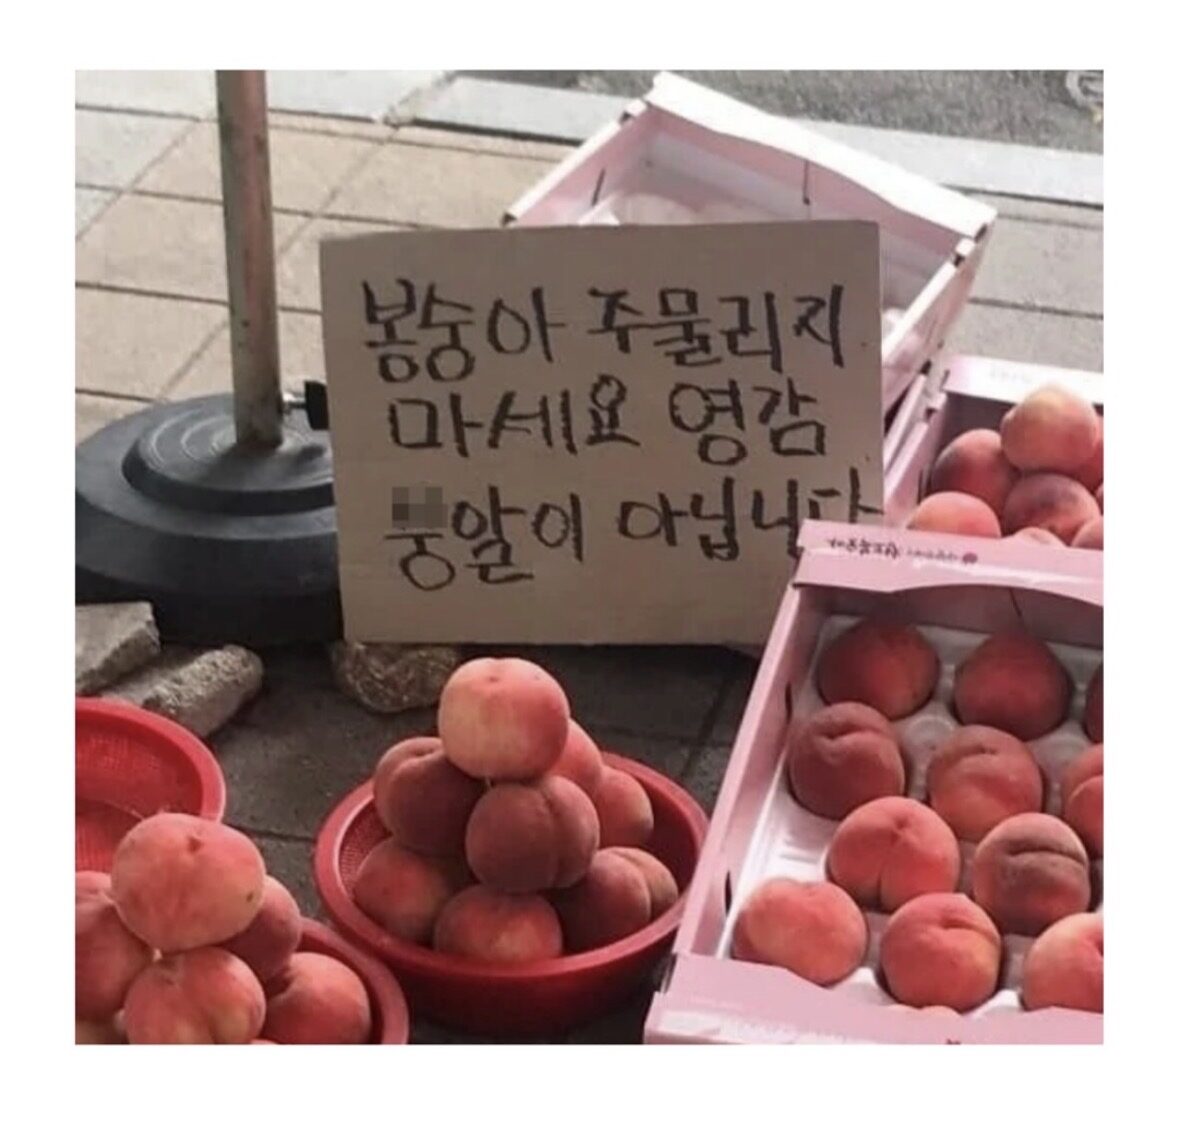 봉숭아 주물리지
마세요 영감
알이 아닙니다